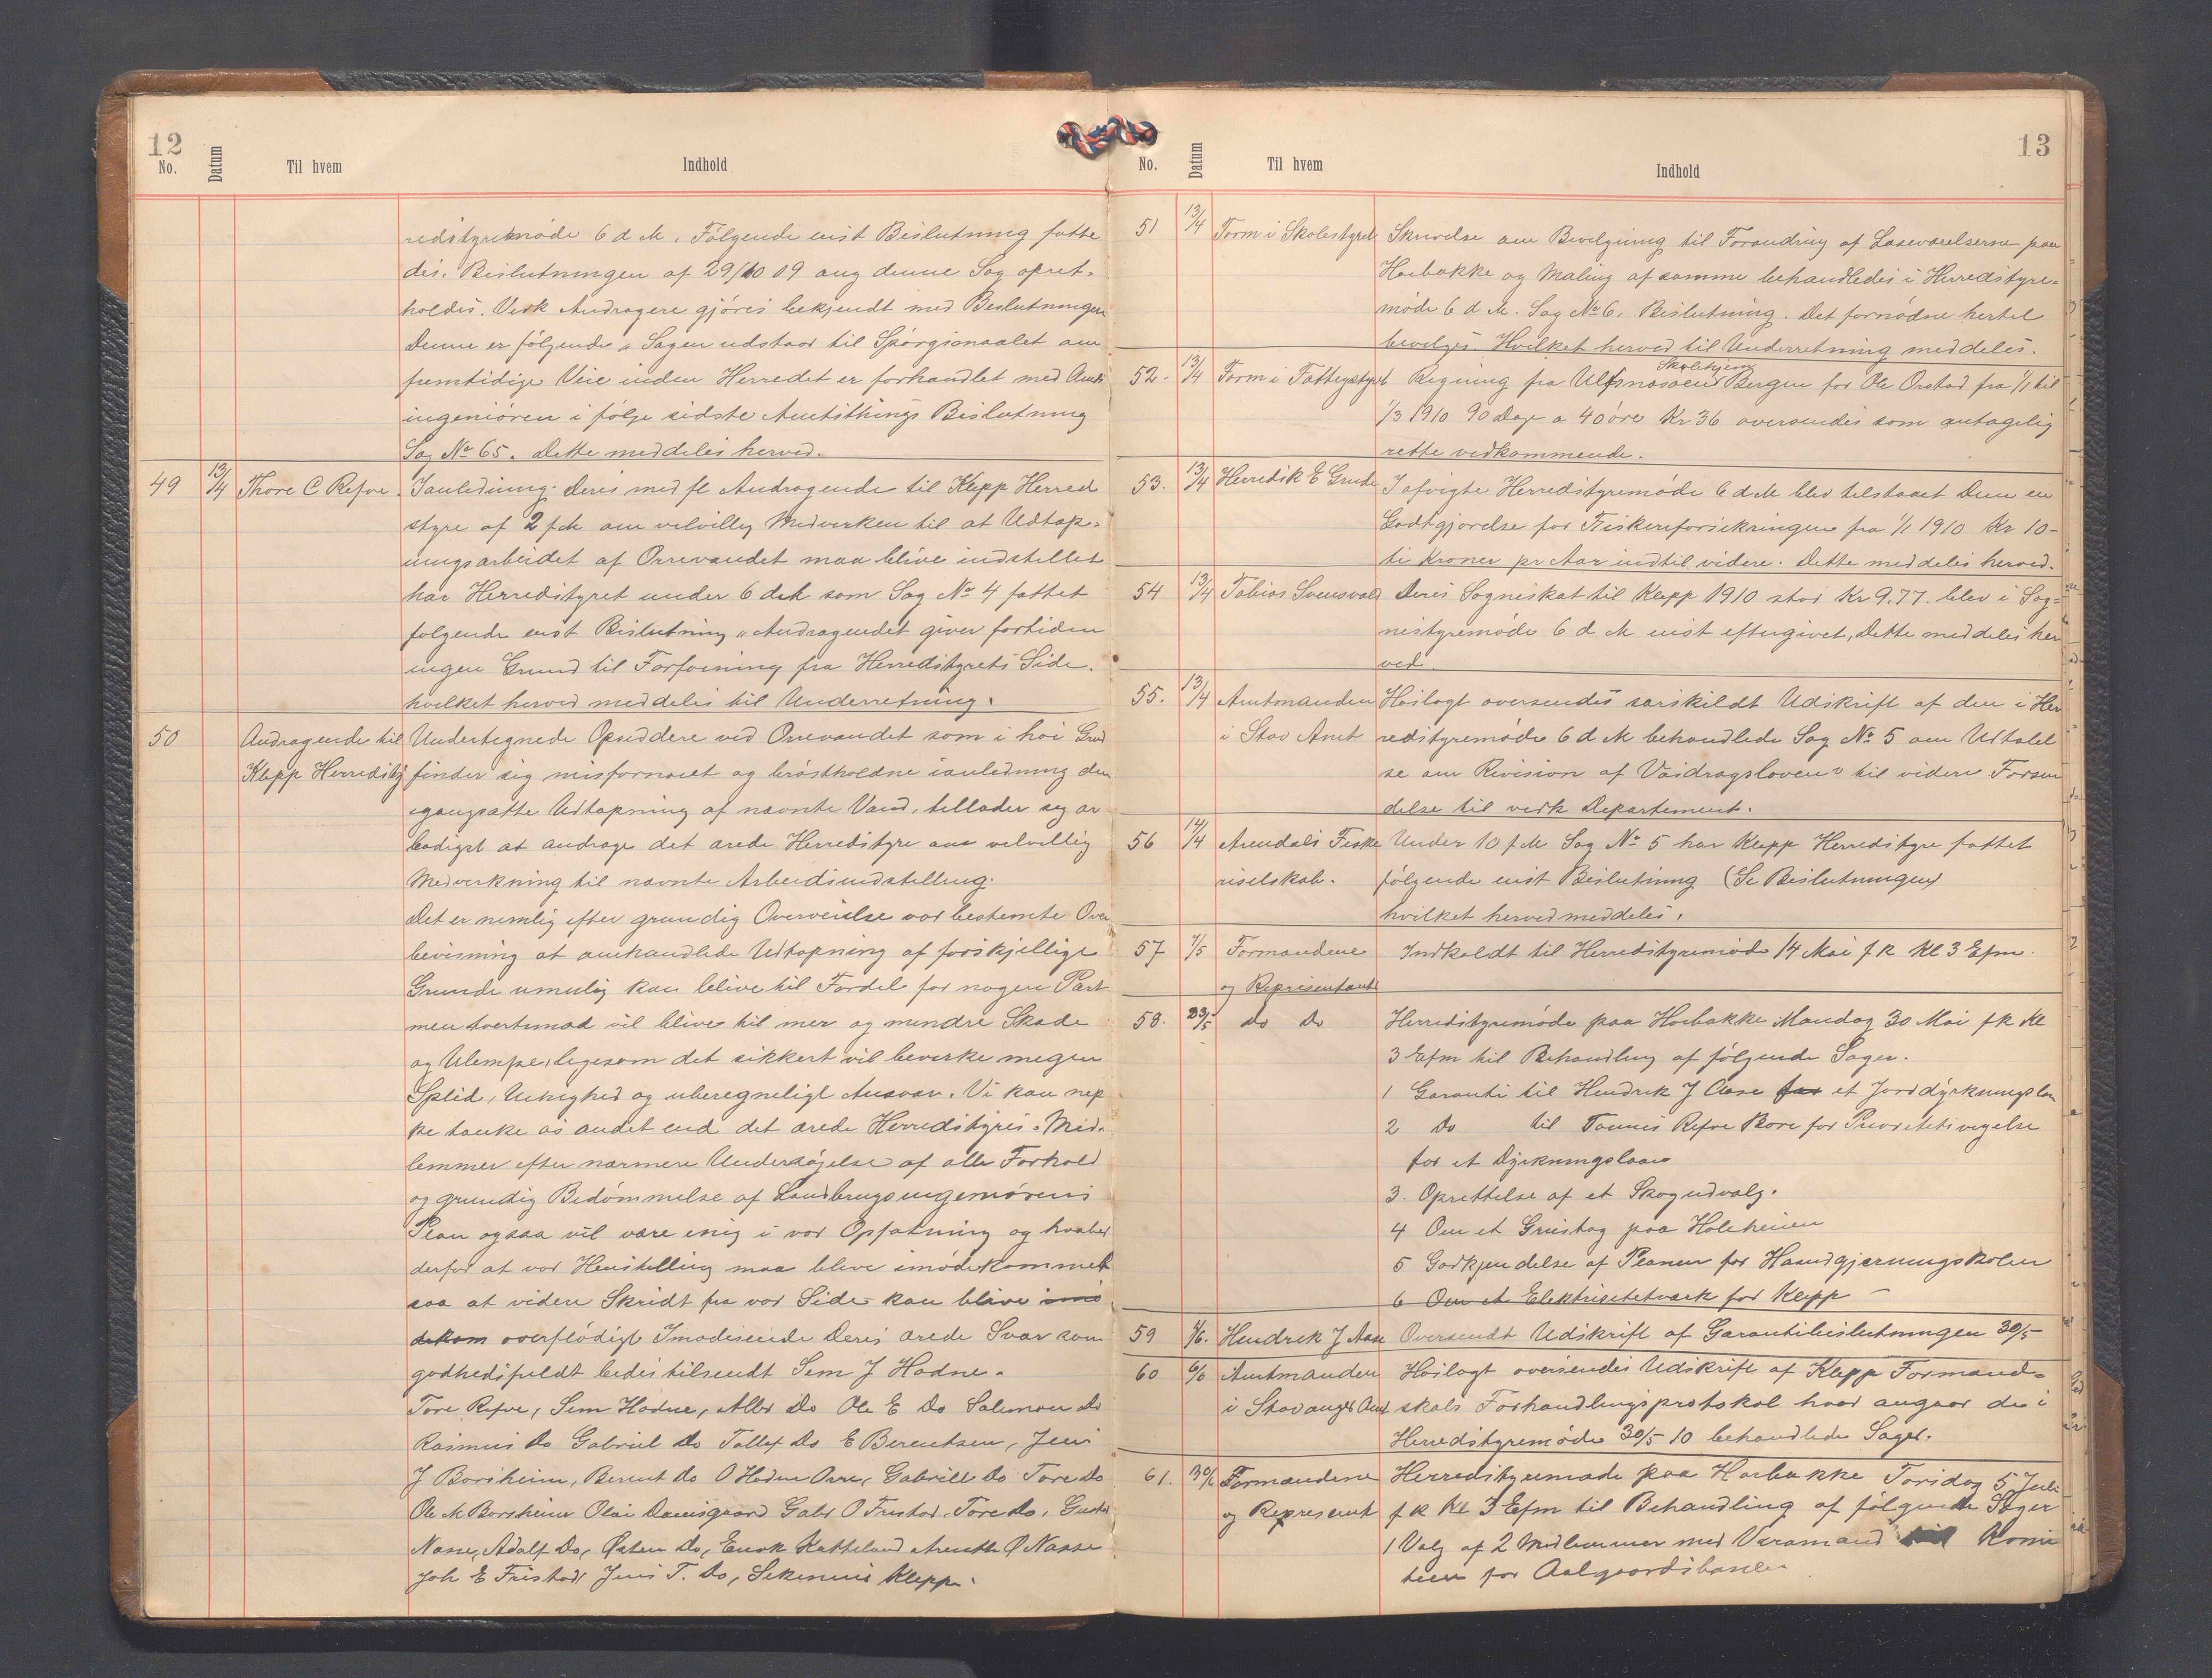 12
No. Datum Til hvem Indhold
redstyremøde 6 d M. Følgende enst Beslutning fatte
des. Beslutningen af 29/10 09 ang denne Sag opret-
holdes. Vedk Andragere gjøres bekjendt med Beslutningen
Denne er følgende „Sagen udstaar til Spørgsmaalet om
fremtidige Veie inden Herredet er forhandlet med Amts
ingeniøren i følge sidste Amtsthings Beslutning
Sag No 65. Dette meddeles herved.
49 13/4 Thore C Refve. Ianledning Deres med fl Andragende til Klepp Herred
styre af 2 f M om velvillig Medvirken til at Udtap-
ningsarbeidet af Orrevandet maa blive indstillet
har Herredstyret under 6 d M som Sag No 4 fattet
følgende enst Beslutning „Andragendet giver fortiden
ingen Grund til Forføining fra Herredstyrets Side.
hvilket herved meddeles til Underretning.
50 Andragende til Undertegnede Opsiddere ved Orrevandet som i høi Grad
Klepp Herredsty finder sig misfornøiet og brøstholdne ianledning den
igangsatte Udtapning af nævnte Vand, tillader seg ær
bødigst at andrage det ærede Herredstyre om velvillig
Medvirkning til nævnte Arbeidsindstilling.
Det er nemlig efter grundig Overveielse vor bestemte Over
bevisning at omhandlede Udtapning af forskjellige
Grunde umulig kan blive til Fordel for nogen Part
men tvertimod vil blive til mer og mindre Skade
og Ulempe, ligesom det sikkert vil bevirke megen
Splid, Uenighed og uberegneligt Ansvar. Vi kan nep
pe tænke os andet end det ærede Herredstyres Med-
lemmer efter nærmere Undersøgelse af alle Forhold
og grundig Bedømmelse af Landbrugsingeniørens
Plan ogsaa vil være enig i vor Opfatning og haaber
derfor at vor Henstilling maa blive imødekommet
saa at videre Skridt fra vor Side kan blive imø
dekom overflødigt Imødeseende Deres ærede Svar som
godhedsfuldt bedes tilsendt Sem J Hodne.
Tore Refve, Sem Hodne, Albr Do Ole E Do Salomon Do
Rasmus Do Gabriel Do Tollef Do E Berentsen, Jens
J Borsheim, Berent Do O Hodne Orre, Gabriel Do Tore Do
Ole M Borsheim Olai Damsgaard Gabr O Frustad. Tore Do,
Nasse, Adolf Do, Østen Do, Enok Katteland O Nasse
Joh E Frustad, Jens T. Do, Klepp.
13
No. Datum Til hvem Indhold
51 13/4 Form i Skolestyret Skrivelse om Bevilgning til Forandring af Laseværelserne paa
Horbakke og Maling af samme behandledes i Herredstyre-
møde 6 d M. Sag No 6. Beslutning. Det fornødne hertil
bevilges Hvilket herved til Underretning meddeles.
Skolehjem
52. 13/4 Form i Fattigstyret Regning fra Ulfsnesøens Bergen for Ole Orstad fra 1/1 til
1/3 1910 90 Dage a 40 øre Kr 36 oversendes som antagelig
rette vedkommende.
53. 13/4 Herredsk E Grude I afvigte Herredstyremøde 6 d M blev tilstaaet Dem en
Godtgjørelse for Fiskerforsikringen fra 1/1 1910 Kr 10-
ti Kroner pr Aar indtil videre. Dette meddeles herved.
54 13/4 Tobias Svensvold Deres Sogneskat til Klepp 1910 stor Kr 9.77. blev i Sog-
nestyremøde 6 d M enst eftergivet, Dette meddeles her
ved.
55. 13/4 Amtmanden Hoslagt oversendes særskildt Udskrift af den i Her
i Stav Amt redstyremøde 6 d M behandlede Sag No 5 om Udtalel
se om Revision af Vasdragsloven til videre Forsen
delse til vedk Departement.
56 14/4 Arendals Fiske Under 10 f M Sag No 5 har Klepp Herredstyre fattet
riselskab. følgende enst Beslutning (Se Beslutningen)
hvilket herved meddeles.
57 7/5 Formændene Indkaldt til Herredstyremøde 14 Mai f k Kl 3 Efm.
og Representant
58. 23/5 Do Do Herredstyremøde paa Horbakke Mandag 30 Mai fk Kl
3 Efm til Behandling af følgende Sager.
1 Garanti til Hendrik J Aase for et Jorddyrkningslaan
2 Do til Tønnes Refve Bore for Prioritetsvigelse
for et Dyrkningslaan
3. Oprettelse af et Skogudvalg.
4 Om et Grustag paa Holeheien
5 Godkjendelse af Planen for Haandgjerningsskolen
6 Om et Elektricitetværk for Klepp
59 1/6. Hendrik J Aase Oversendt Udskrift af Garantibeslutningen 30/5
60 6/6 Amtmanden Hoslagt oversendes Udskrift af Klepp Formand-
i Stavanger Amt skabs Forhandlingsprotokol hvad angaar de i
Herredstyremøde 30/5 10 behandlede Sager.
61. 30/6 Formændene Herredstyremøde paa Horbakke Torsdag 5 Juli
og Represent f k Kl 3 Efm til Behandling af følgende Sager
1 Valg af 2 Medlemmer med Varamænd til Komi
teen for Aalgaardsbanen